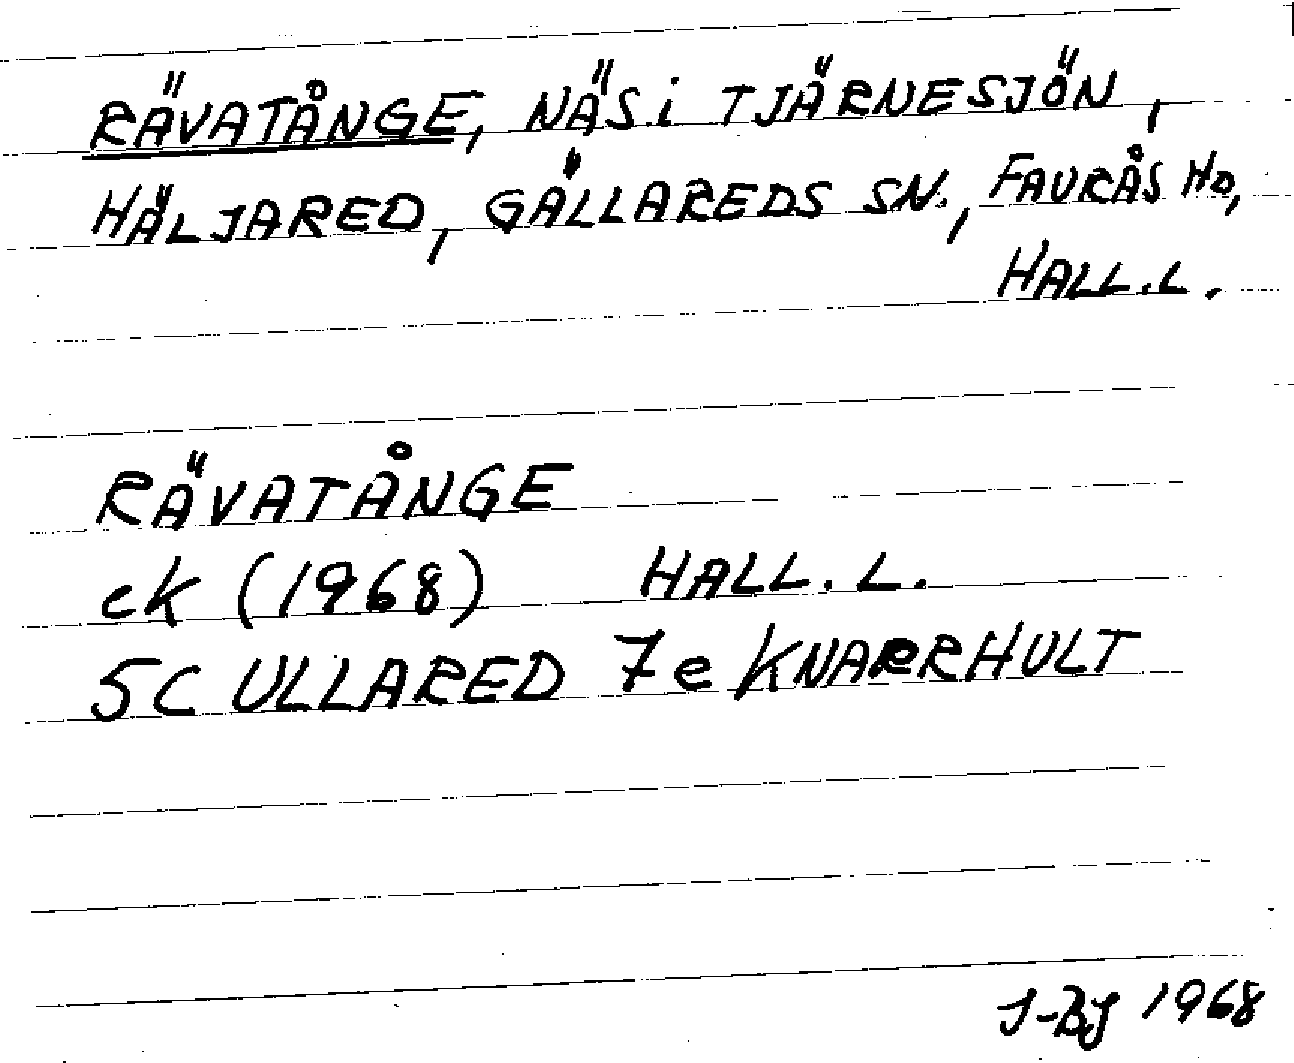 RÄVATÅNGE, NÄS i TJÄRNESJÖN,
HÄLJARED, GÄLLAREDS SN., FAURÅS HD,
HALL.L.
RÄVATÅNGE
ek (1968) HALL.L.
5C ULLARED 7e KNARRHULT
J-Bj 1968